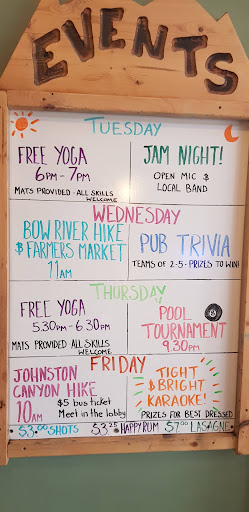 EVENTS
TUESDAY
FREE YOGA
6PM - 7PM
MATS PROVIDED - ALL SKILLS
WELCOME
JAM NIGHT!
OPEN MIC &
LOCAL BAND
WEDNESDAY
BOW RIVER HIKE
& FARMERS MARKET
11AM
PUB TRIVIA
TEAMS OF 2-5 - PRIZES TO WIN!
THURSDAY
FREE YOGA
5.30PM - 6.30PM
MATS PROVIDED ALL SKILLS
WELCOME
POOL
TOURNAMENT
9.30PM
FRIDAY
JOHNSTON
CANYON HIKE
10AM
$5 bus ticket
Meet in the lobby
TIGHT
& BRIGHT
KARAOKE!
PRIZES FOR BEST DRESSED
$3.00 SHOTS $3.25 HAPPY RUM $7.00 LASAGNE